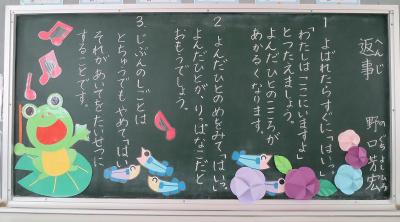 返事
へんじ
野口芳宏
のぐちよしひろ
1 よばれたらすぐに「はいっ。」
「わたしはここにいますよ」
とつたえましょう。
よんだひとのこころが
あかるくなります。
2 よんだひとのめをみて、「はいっ。」
よんだひとが、りっぱなこだと
おもうでしょう。
3 じぶんのしごとは
とちゅうでもやめて、「はいっ」
それがあいてをたいせつに
することです。